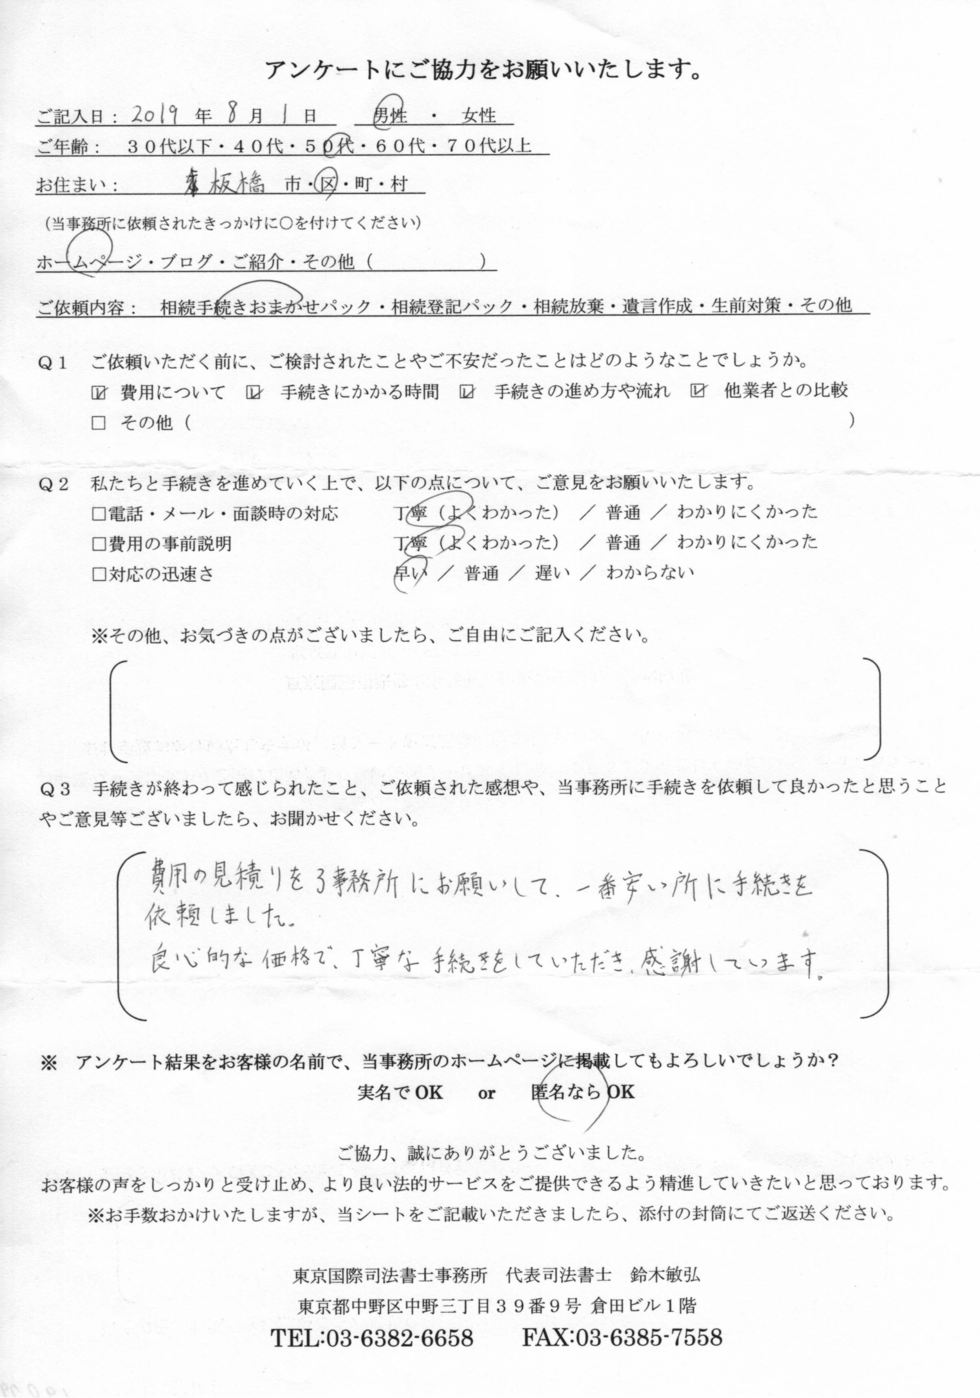 アンケートにご協力をお願いいたします。
ご記入日： 2019 年 8 月 1 日　男性 ・ 女性
ご年齢： ３０代以下・４０代・５０代・６０代・７０代以上
お住まい： 板橋 市・区・町・村
（当事務所に依頼されたきっかけに○を付けてください）
ホームページ・ブログ・ご紹介・その他（　　　　　）
ご依頼内容： 相続手続きおまかせパック・相続登記パック・相続放棄・遺言作成・生前対策・その他
Ｑ１　ご依頼いただく前に、ご検討されたことやご不安だったことはどのようなことでしょうか。
☑ 費用について ☑ 手続きにかかる時間 ☑ 手続きの進め方や流れ ☑ 他業者との比較
□ その他（　　　　　）
Ｑ２　私たちと手続きを進めていく上で、以下の点について、ご意見をお願いいたします。
□電話・メール・面談時の対応　丁寧（よくわかった） ／ 普通 ／ わかりにくかった
□費用の事前説明　丁寧（よくわかった） ／ 普通 ／ わかりにくかった
□対応の迅速さ　早い ／ 普通 ／ 遅い ／ わからない
※その他、お気づきの点がございましたら、ご自由にご記入ください。
Ｑ３　手続きが終わって感じられたこと、ご依頼された感想や、当事務所に手続きを依頼して良かったと思うこと
やご意見等ございましたら、お聞かせください。
費用の見積りを3事務所にお願いして、一番安い所に手続きを
依頼しました。
良心的な価格で、丁寧な手続きをしていただき、感謝しています。
※　アンケート結果をお客様の名前で、当事務所のホームページに掲載してもよろしいでしょうか？
実名でOK　or　匿名ならOK
ご協力、誠にありがとうございました。
お客様の声をしっかりと受け止め、より良い法的サービスをご提供できるよう精進していきたいと思っております。
※お手数おかけいたしますが、当シートをご記載いただきましたら、添付の封筒にてご返送ください。
東京国際司法書士事務所　代表司法書士　鈴木敏弘
東京都中野区中野三丁目３９番９号 倉田ビル１階
TEL:03-6382-6658　FAX:03-6385-7558